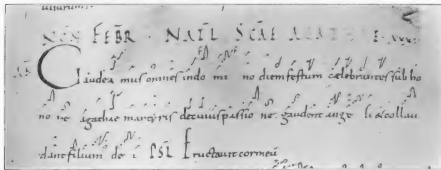 NON FEBR · NATL SCAE AGATHAE
Gaudea mus omnes indo mi no diem festum celebrantes sub ho
no re agathae martyris de cuius passio ne gaudent ange li & collau
dant filium de i PSL Eructavit cor meu